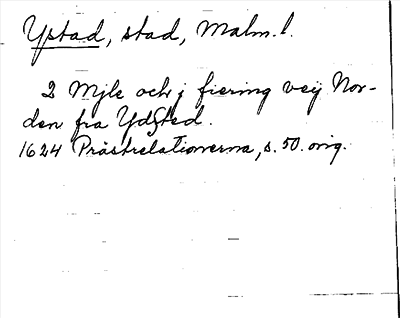 Ystad, stad, Malm. l.
2 Mjle och j fiering veij Nor-
den fra Ydsted.
1624 Prästrelationerna, s. 50. orig.